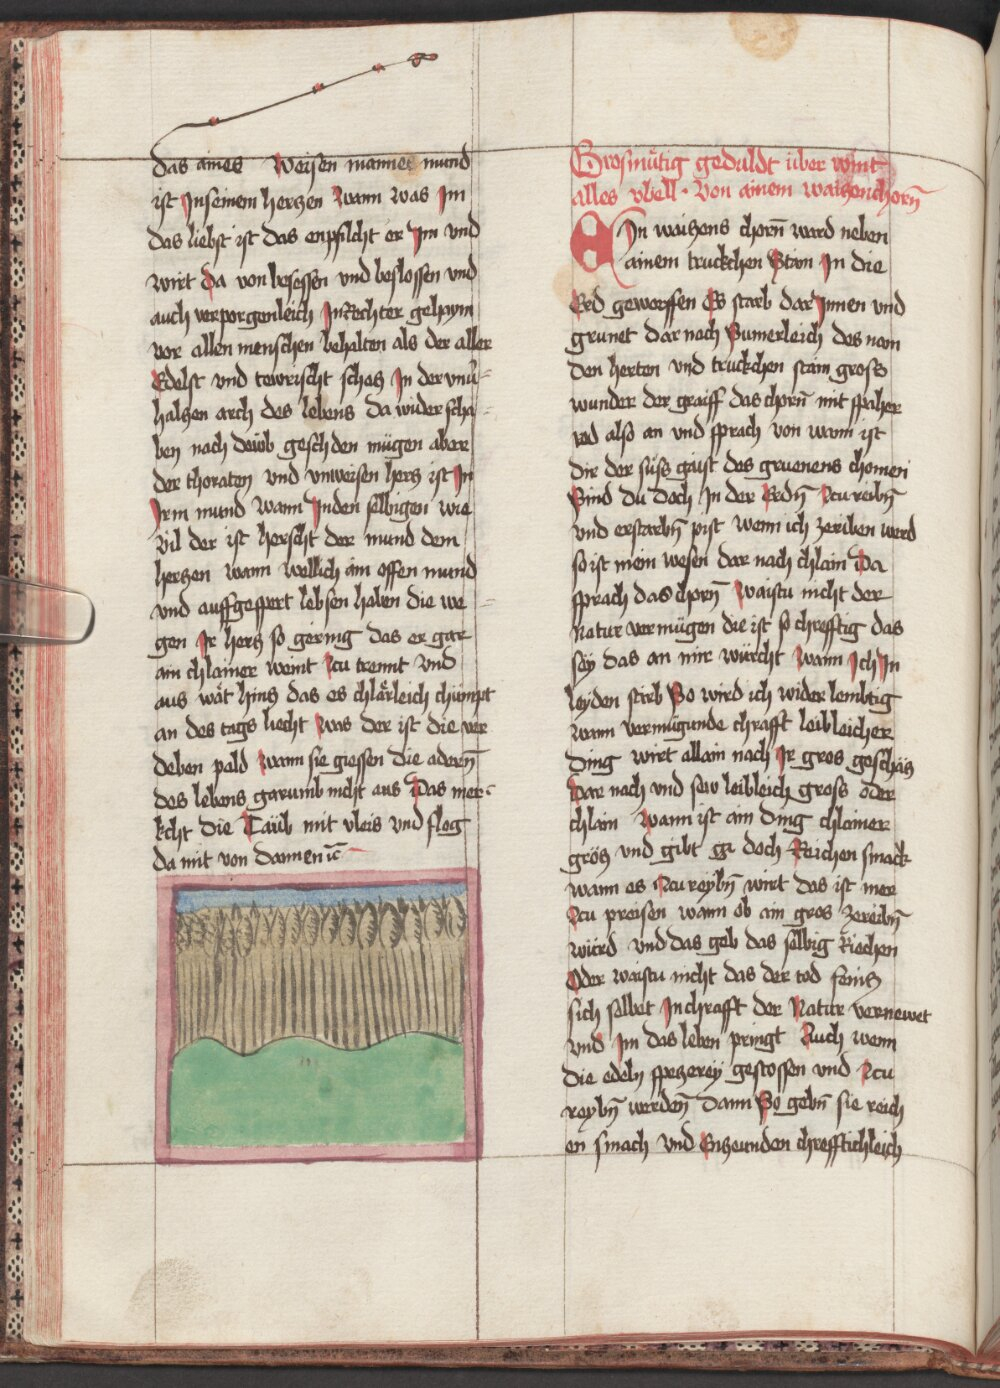 das aines Weisen mannes mund
ist Inseinem herczen Wann was Im
das liebst ist das enpfilcht er Im vnd
wirt Da von besessen vnd beslossen vnd
auch verporgenleich InRechter gehaym
vor allen menschen behalten als der aller
Edelst vnd tewrischt schacz In der vnu-
halsen arch des lebens da wider scha-
ben noch dewb geschden mügen aber
der thoraten vnd vnweisen hercz ist In
Irm mund wann Inden selbigen wie
vil der ist herscht der mund dem
herczen wann wellich ain offen mund
vnd auffgespert lebsen haben die we-
gen Ir hercz so gering das er gar
ain chlainer weint Zcu trennt vnd
aus wät hincz das es chlärleich chümpt
an des tags liecht Was der ist die ver
deben pald wann sie giessen die adern̄
des lebens garumb nicht aus Das mer-
kcht die Taüb mit vleis vnd flog
da mit von dannen ꝛc
Grosmütig geduldt über wint
alles vbell · Von ainem waiczenchorn̄
EIn waiczens chorn̄ ward neben
ainem truckchen Stain In die
Erd geworffen Es starb dar Innen vnd
grunet dar nach Sumerleich des nam
den herten vnd truckchen stain gross
wunder der graiff das chorn̄ mit spaher
red also an vnd sprach von wann ist
dir der süss gaist des gruenens chomen
Sind du doch In der Erdn̄ Zcureibn̄
vnd erstarbn̄ pist wenn ich zeriben werd
so ist mein wesen dar nach chlain Da
sprach das chorn̄ Waistu nicht der
Natur vermügen die ist so chrefftig das
sey das an mir würcht Wann Ich In
leyden stirb So wird ich wider lembtig
wann vermügunde chrafft leibleicher
ding wirt allain nach Ir gros geschäcz
Dar nach vnd sew leibleich gross oder
chlain Wann ist ain ding chlainer
grös vnd gibt er doch Reichen smack
wann es Zcureybn̄ wirt das ist mer
Zcu preisen wann ob ain gros zereibn̄
würd vnd das geb das selbig Riechen
Oder waistu nicht das der tod fenix
sich selbet Inchrafft der Natur vernewet
vnd Im das leben pringt Auch wenn
die edeln speczerey gestossen vnd Zcu
reybn̄ werden̄ dann So gebn̄ sie reich
en smach vnd Enczunden chrefftichleich